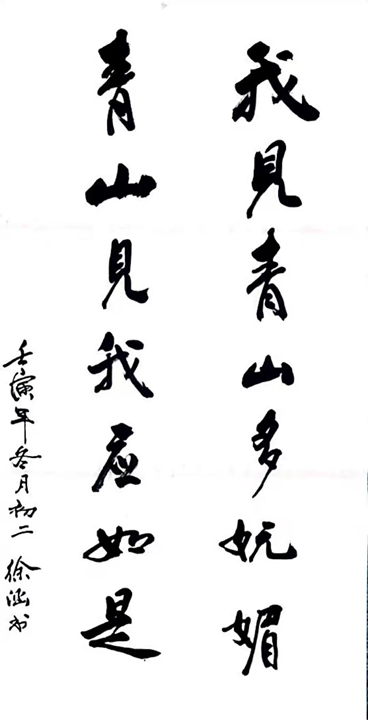 我見青山多妩媚
青山見我应如是
壬寅年冬月初二 徐涵书